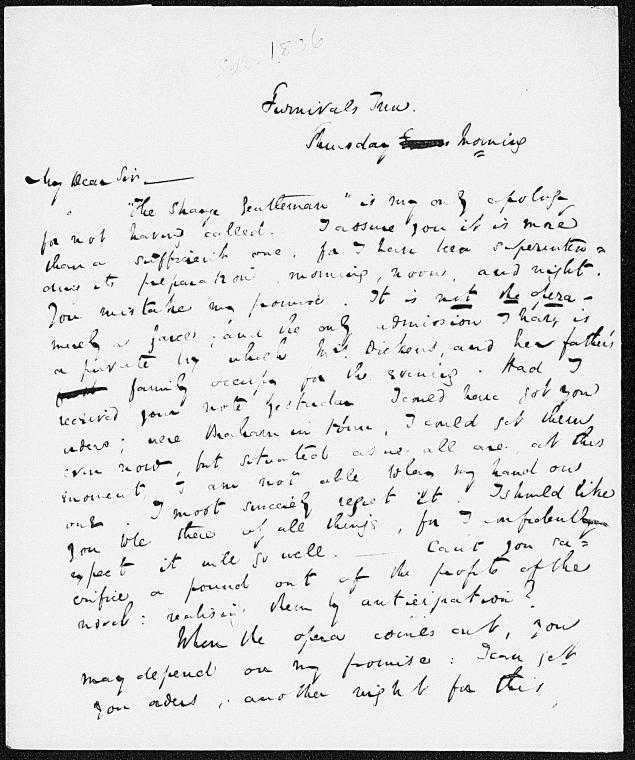 Sep. 1836
Furnivals Inn.
Thursday Morning
My Dear Sir.
"The Strange Gentleman" is my only apology
for not having called. I assure you it is more
than a sufficient one, for I have been superinten=
ding its preparation, morning, noon, and night.
You mistake my promise. It is not the opera -
merely a farce; and the only admission I have, is
a private box which Mrs Dickens, and her father's
family occupy for the evening. Had I
received your note yesterday I could have got you
orders; were Braham in town, I could get them
even now, but situated as we all are, at this
moment, I am not able to lay my hand on
one. I most sincerely regret it. I should like
you to be there of all things, for I confidently
expect it will go well. Can't you sa=
crifice a pound out of the profits of the
novel: realising them by anticipation?
When the opera comes out, you
may depend on my promise: I can get
you orders, another night for this,